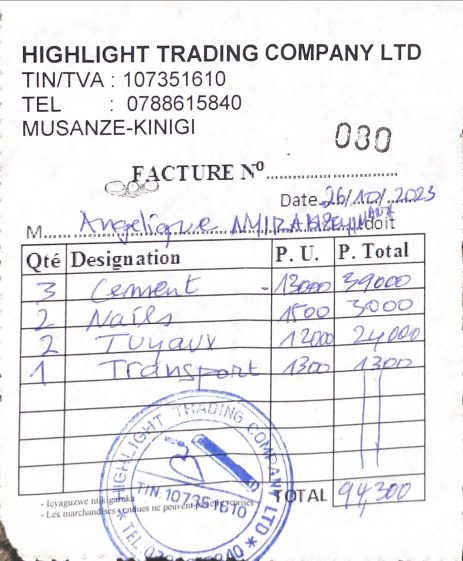 HIGHLIGHT TRADING COMPANY LTD
TIN/TVA : 107351610
TEL : 0788615840
MUSANZE-KINIGI
080
FACTURE Nº
Date 26/10/2023
M Angelique doit
Qté Designation P. U. P. Total
3 Cement 13000 39000
2 Nails 1500 3000
2 Tuyaux 12000 24000
1 Transport 1300 1300
TOTAL 94,300
- Icyaguzwe ntikigaruka
- Les marchandises vendues ne peuvent reprises
HIGHLIGHT TRADING COMPANY LTD
TIN: 107351610